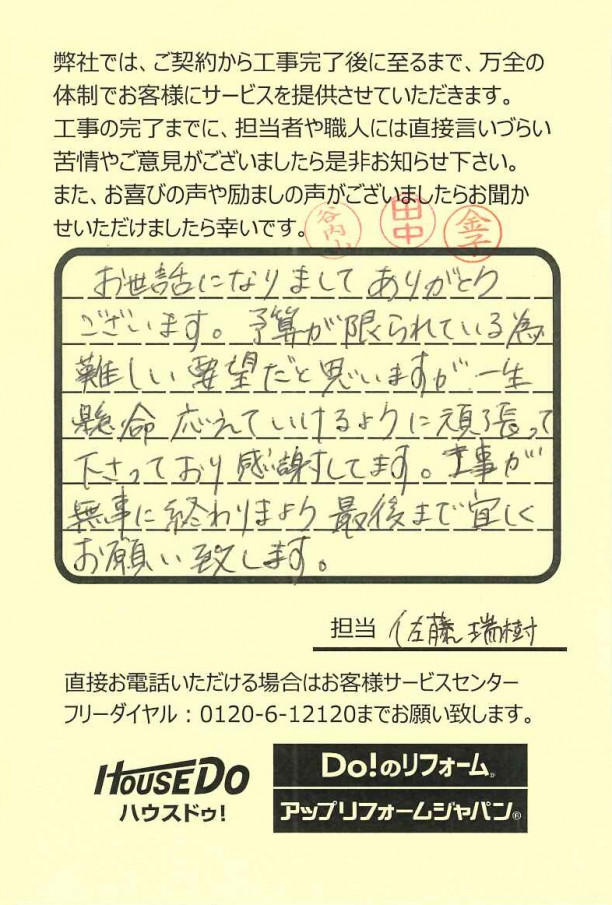 弊社では、ご契約から工事完了後に至るまで、万全の
体制でお客様にサービスを提供させていただきます。
工事の完了までに、担当者や職人には直接言いづらい
苦情やご意見がございましたら是非お知らせ下さい。
また、お喜びの声や励ましの声がございましたらお聞か
せいただけましたら幸いです。
谷内山
田中
金子
お世話になりまして ありがとう
ございます。予算が限られている為
難しい要望だと思いますが 一生
懸命 応えていけるように頑張って
下さっており 感謝してます。工事が
無事に終わりまよう 最後まで宜しく
お願い致します。
担当 佐藤 瑞樹
直接お電話いただける場合はお客様サービスセンター
フリーダイヤル：0120-6-12120までお願い致します。
HOUSEDO
ハウスドゥ!
Do!のリフォーム
アップリフォームジャパン®